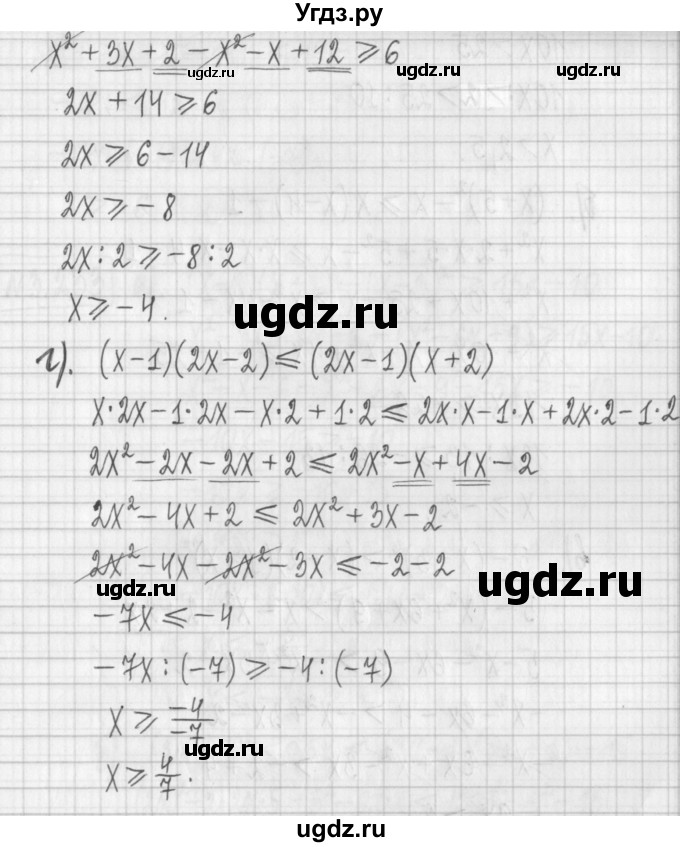 Угдз.ру
x² + 3x + 2 - x² - x + 12 ⩾ 6
ugdz.ru ugdz.ru ugdz.ru
2x + 14 ⩾ 6
2x ⩾ 6 - 14
2x ⩾ -8
2x : 2 ⩾ -8 : 2
x ⩾ -4.
ugdz.ru
г). (x-1)(2x-2) ⩽ (2x-1)(x+2)
x·2x - 1·2x - x·2 + 1·2 ⩽ 2x·x - 1·x + 2x·2 - 1·2
2x² - 2x - 2x + 2 ⩽ 2x² - x + 4x - 2
2x² - 4x + 2 ⩽ 2x² + 3x - 2
2x² - 4x - 2x² - 3x ⩽ -2 - 2
ugdz.ru
-7x ⩽ -4
-7x : (-7) ⩾ -4 : (-7)
x ⩾ -4/-7
ugdz.ru
x ⩾ 4/7.
ugdz.ru